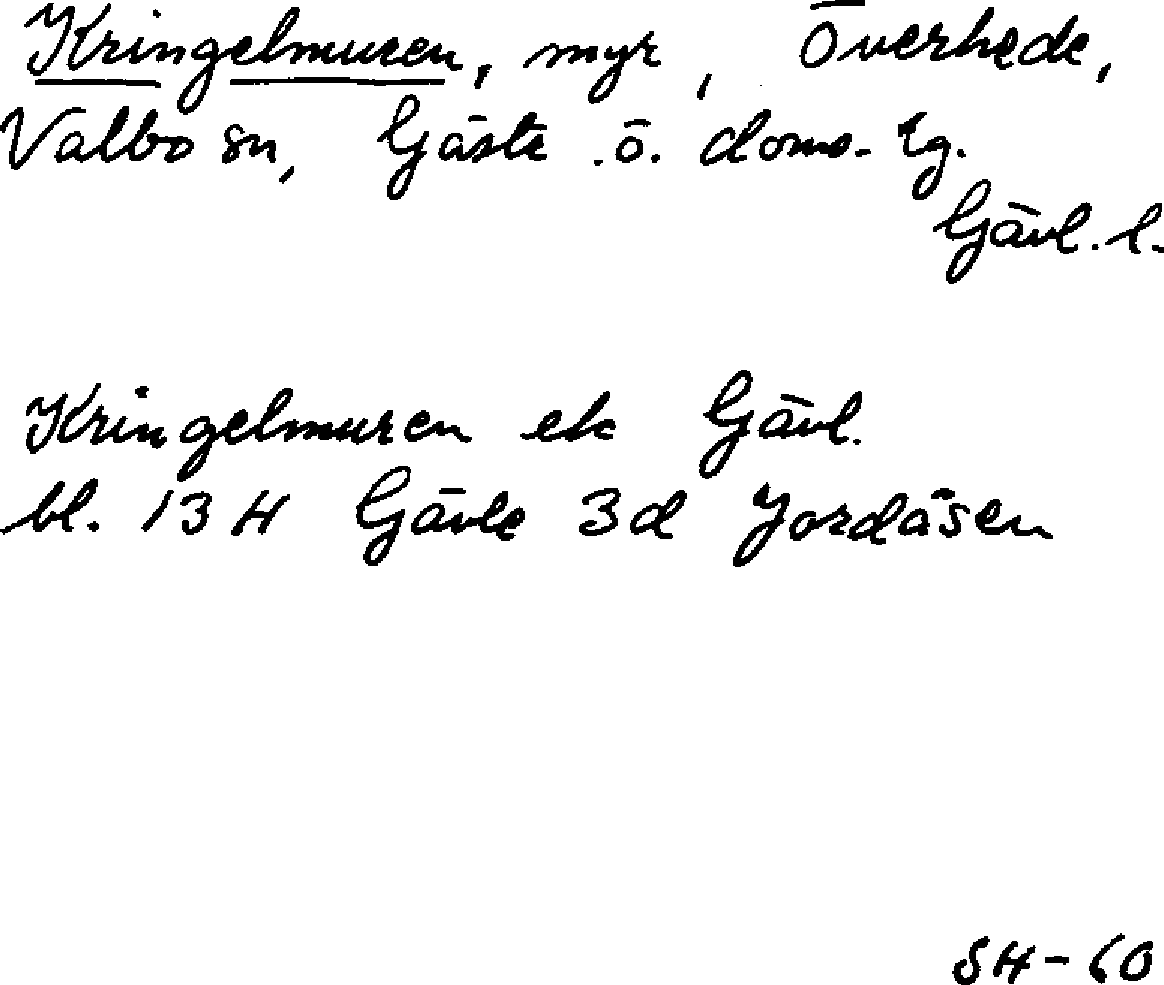 Kringelmuren, myr, Överhede,
Valbo sn, Gästr. ö. doms.-tg.
Gävl. l.
Kringelmuren ek Gävl.
bl. 13 H Gävle 3d Jordåsen
SH-60